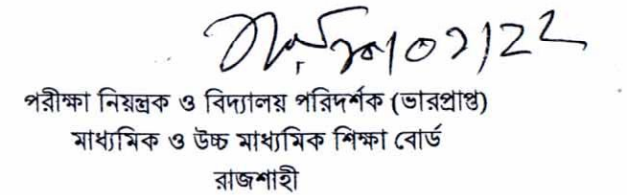 পরীক্ষা নিয়ন্ত্রক ও বিদ্যালয় পরিদর্শক (ভারপ্রাপ্ত)
মাধ্যমিক ও উচ্চ মাধ্যমিক শিক্ষা বোর্ড
রাজশাহী